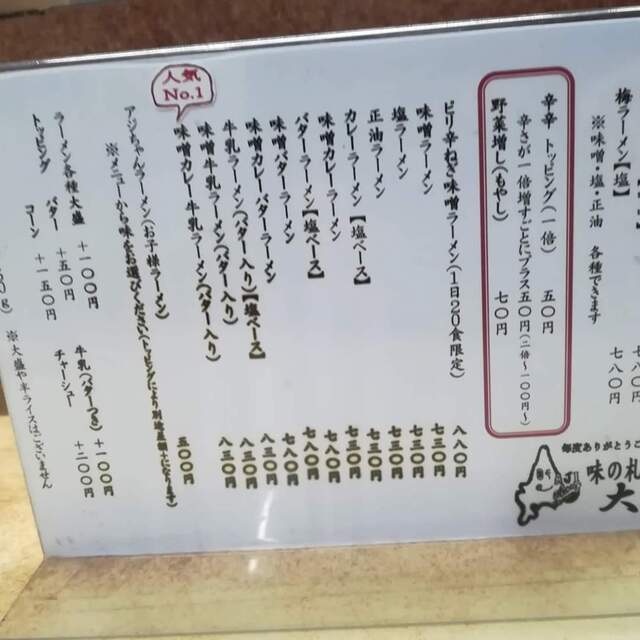 梅ラーメン【塩】
※味噌・塩・正油 各種できます
七八〇円
辛辛 トッピング(一倍) 五〇円
辛さが一倍増すごとにプラス五〇円(二倍〜一〇〇円〜)
野菜増し(もやし) 七〇円
毎度ありがとうご
味の札
大
ピリ辛ねぎ味噌ラーメン(1日20食限定) 八八〇円
味噌ラーメン 七三〇円
塩ラーメン 七三〇円
正油ラーメン 七三〇円
カレーラーメン【塩ベース】 七三〇円
味噌カレーラーメン 七八〇円
バターラーメン【塩ベース】 七八〇円
味噌バターラーメン 七八〇円
味噌カレーバターラーメン 八三〇円
牛乳ラーメン(バター入り)【塩ベース】 八三〇円
味噌牛乳ラーメン(バター入り) 八三〇円
人気
No.1
味噌カレー牛乳ラーメン(バター入り) 八三〇円
アジちゃんラーメン(お子様ラーメン) 五〇〇円
※メニューから味をお選びください(トッピングにより別途追加になります)
ラーメン各種大盛 +一〇〇円
トッピング バター +五〇円
コーン +一五〇円
牛乳(バターつき) +一〇〇円
チャーシュー +二〇〇円
※大盛や半ライスはございません